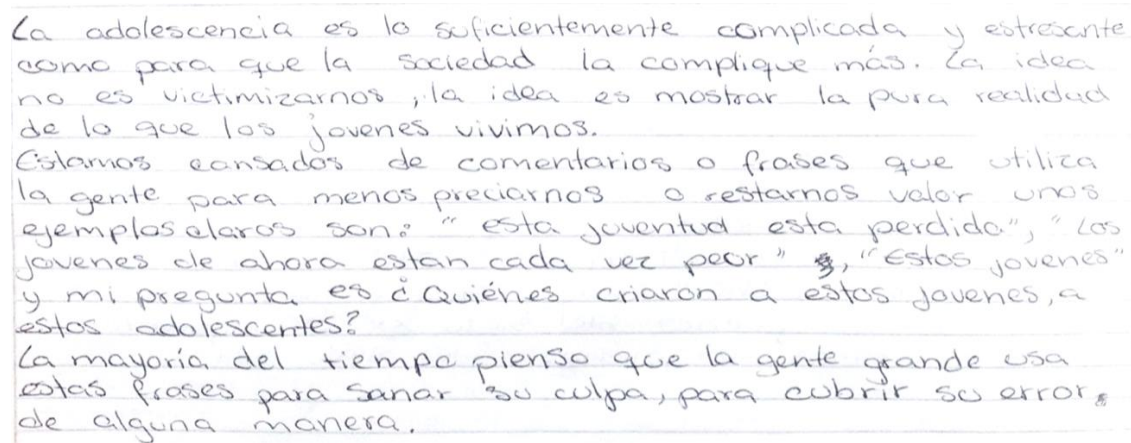 La adolescencia es lo suficientemente complicada y estresante
como para que la sociedad la complique más. La idea
no es victimizarnos, la idea es mostrar la pura realidad
de lo que los jovenes vivimos.
Estamos cansados de comentarios o frases que utiliza
la gente para menos preciarnos o restarnos valor unos
ejemplos claros son: " esta juventud esta perdida", " Los
jovenes de ahora estan cada vez peor" , "Estos jovenes"
y mi pregunta es ¿Quiénes criaron a estos jovenes, a
estos adolescentes?
La mayoría del tiempo pienso que la gente grande usa
estas frases para sanar su culpa, para cubrir su error
de alguna manera.